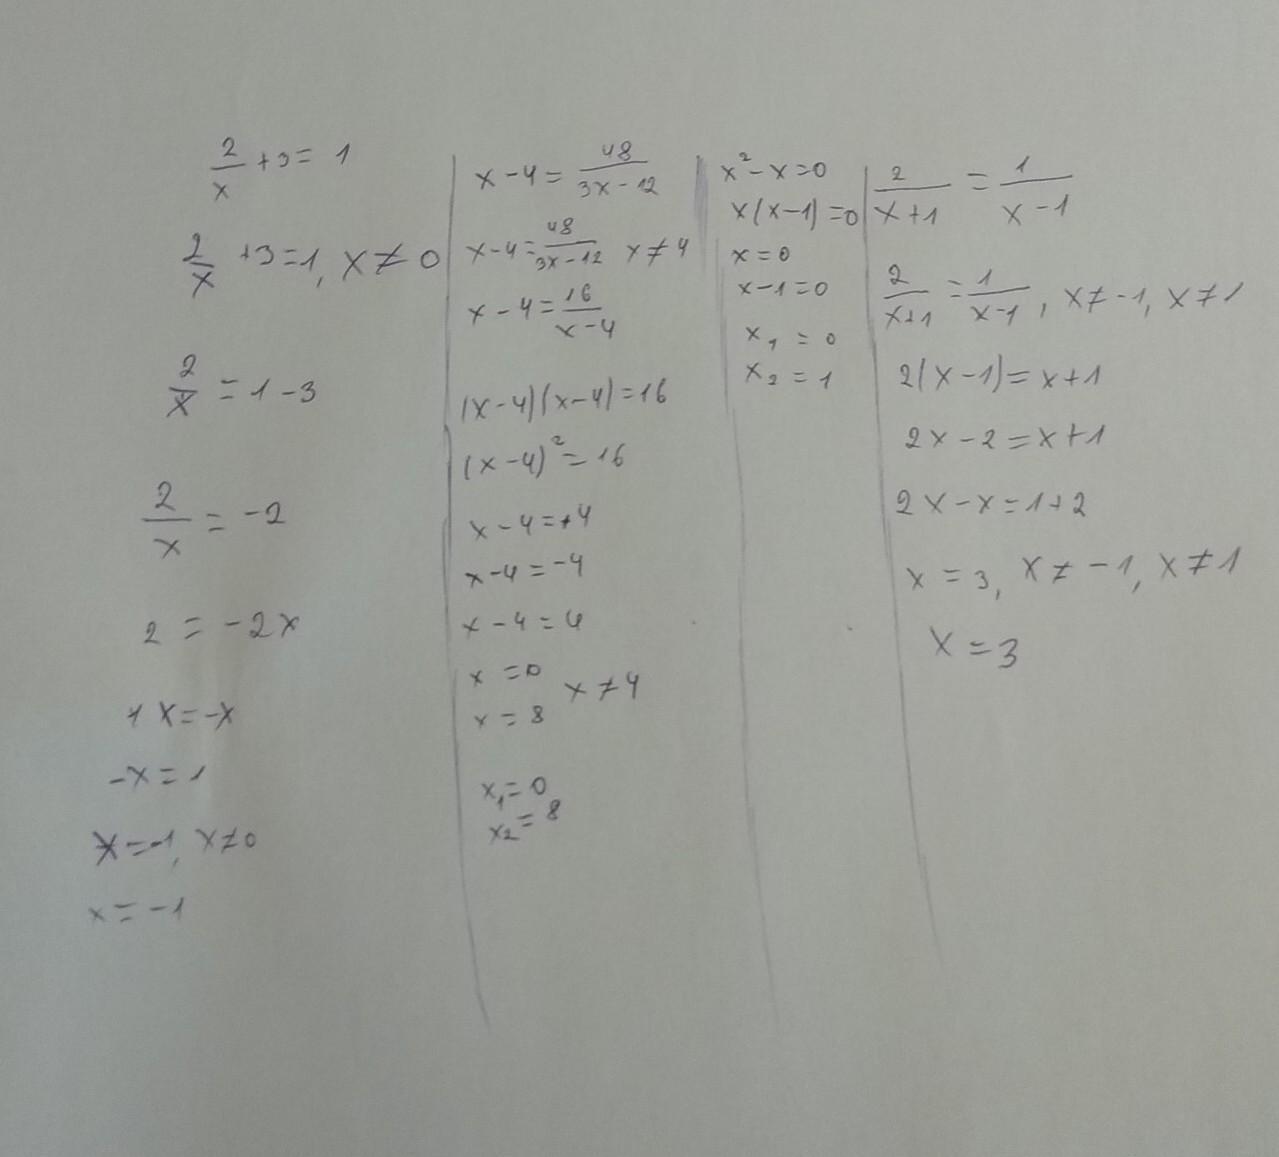 2/x + 3 = 1
2/x + 3 = 1, x ≠ 0
2/x = 1 - 3
2/x = -2
2 = -2x
1 x = -x
-x = 1
x = -1, x ≠ 0
x = -1
x - 4 = 48/(3x - 12)
x - 4 = 48/(3x - 12) x ≠ 4
x - 4 = 16/(x - 4)
(x - 4)(x - 4) = 16
(x - 4)² = 16
x - 4 = +4
x - 4 = -4
x - 4 = 4
x = 0
x ≠ 4
x = 8
x₁ = 0
x₂ = 8
x² - x = 0
x(x - 1) = 0
x = 0
x - 1 = 0
x₁ = 0
x₂ = 1
2/(x + 1) = 1/(x - 1)
2/(x + 1) = 1/(x - 1), x ≠ -1, x ≠ 1
2(x - 1) = x + 1
2x - 2 = x + 1
2x - x = 1 + 2
x = 3, x ≠ -1, x ≠ 1
x = 3